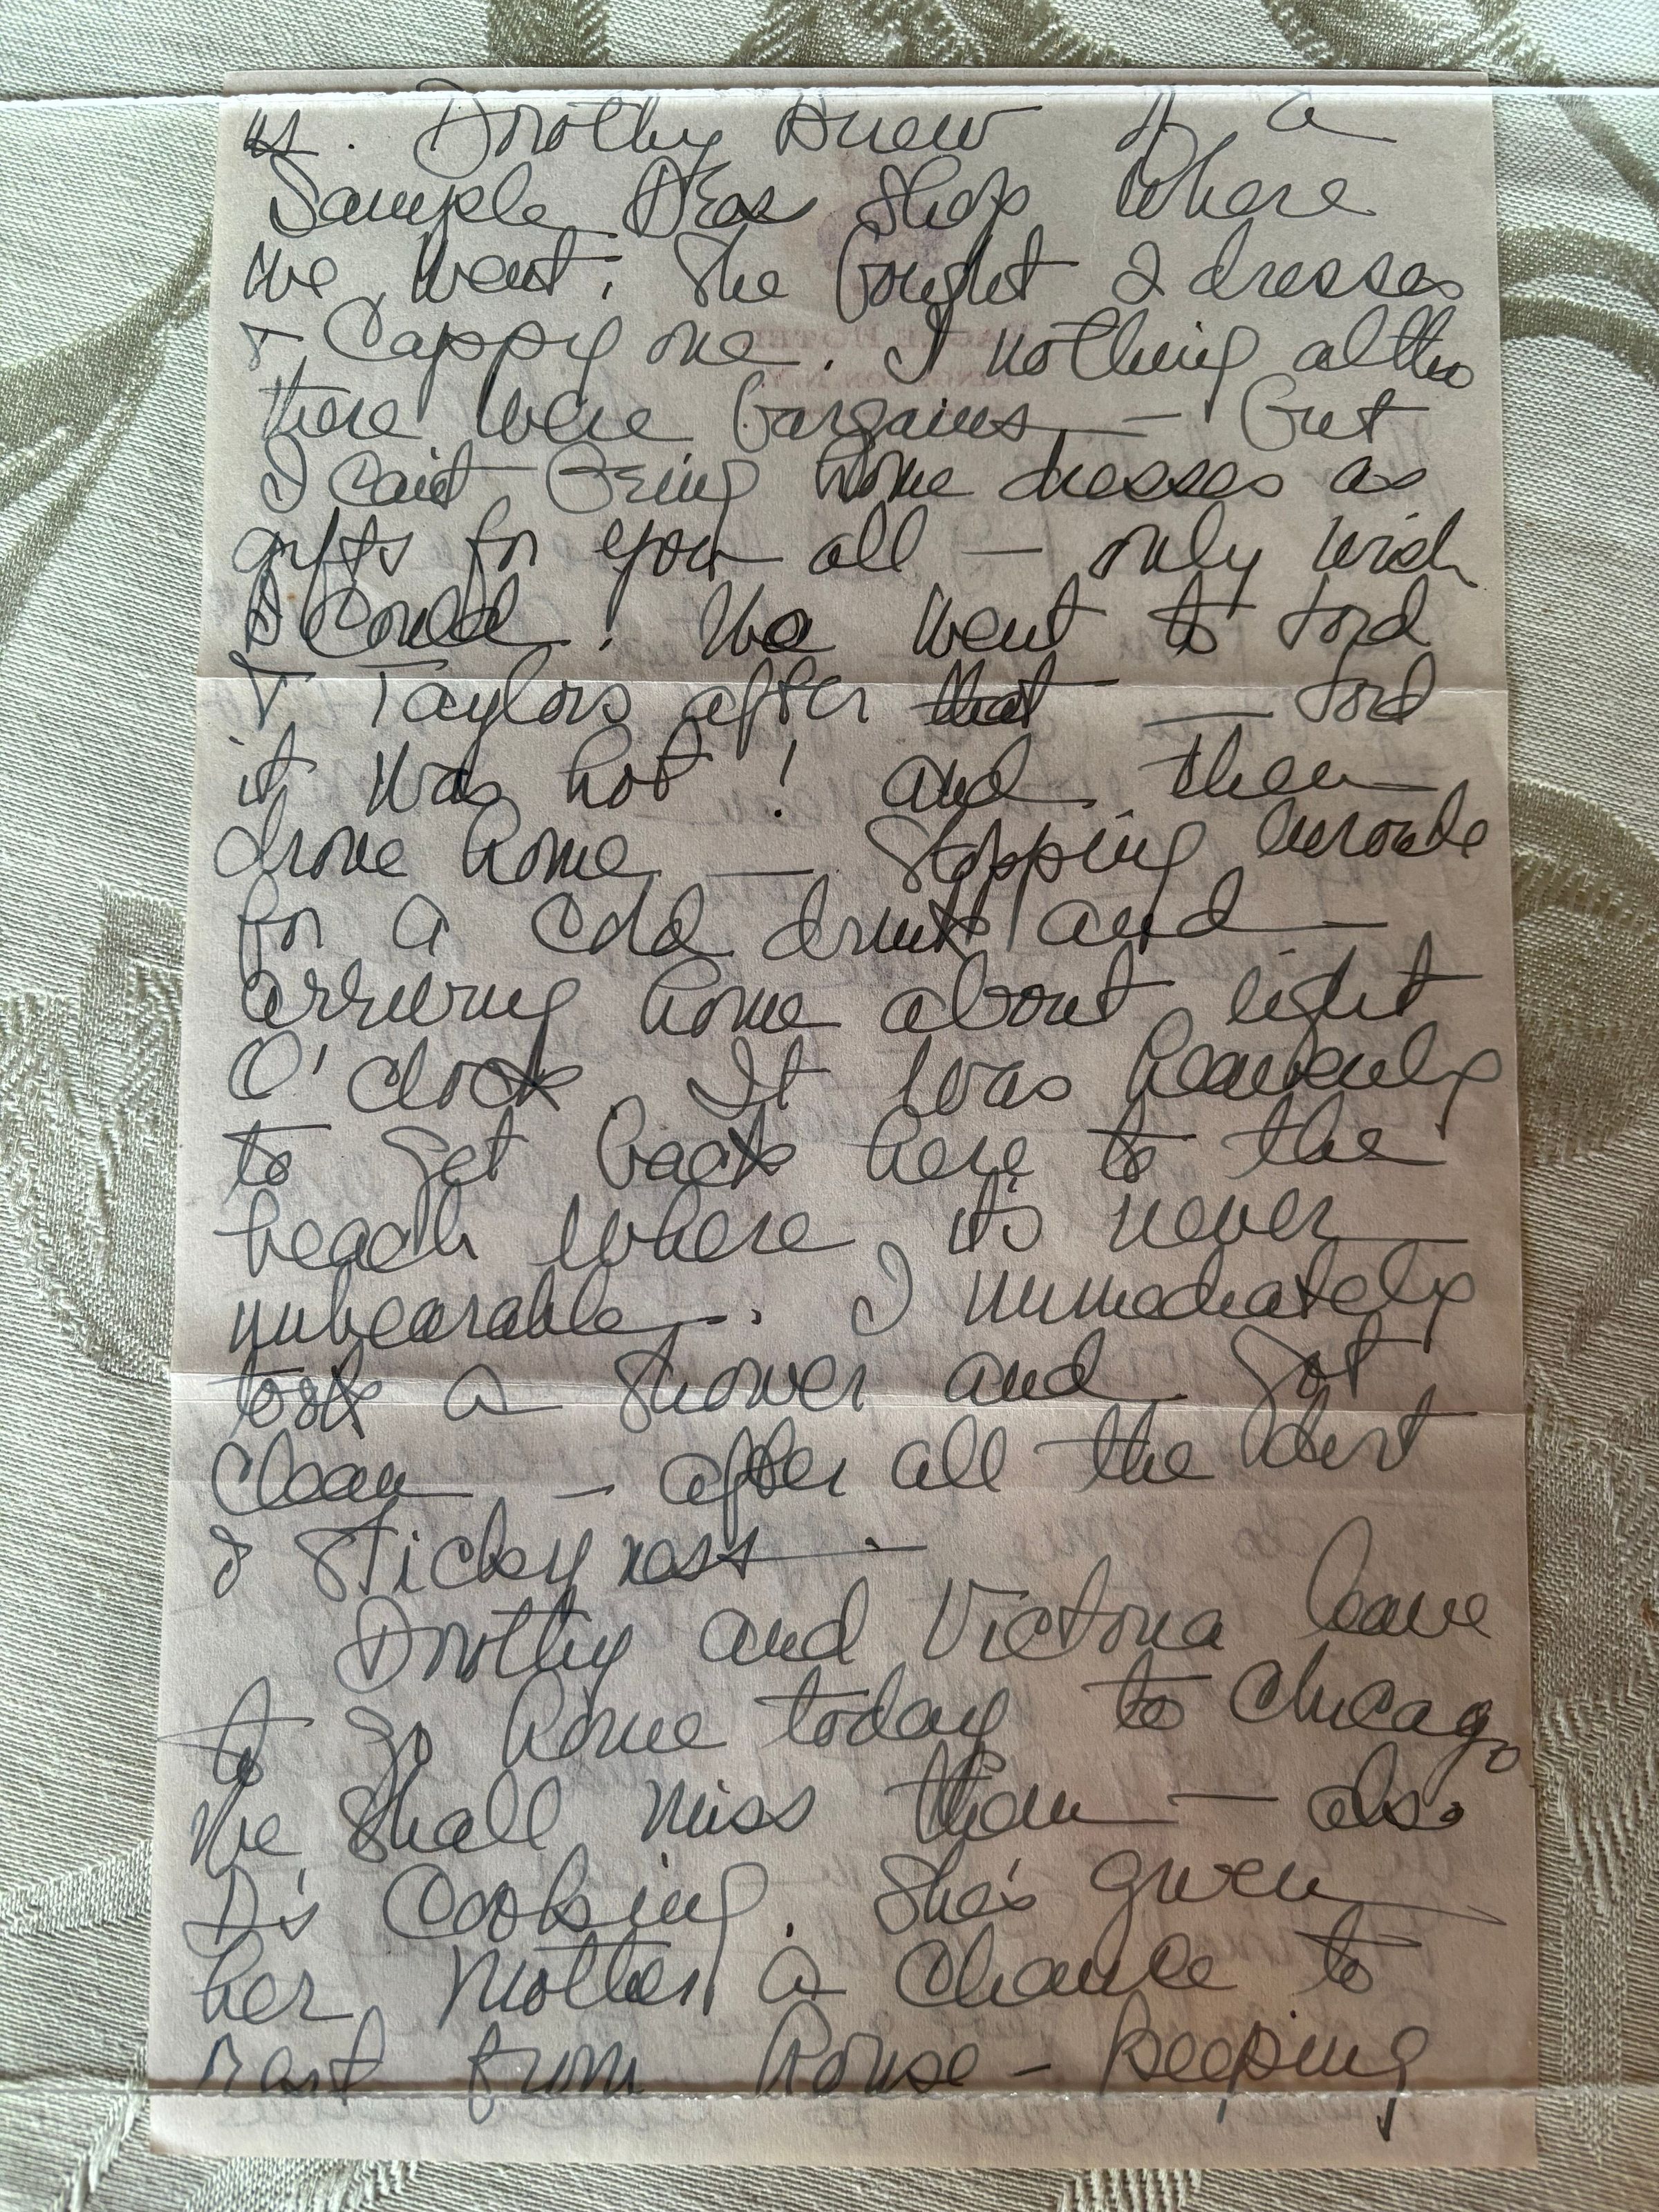 us. Dorothy knew of a
Sample Dress Shop where
we went. She bought 2 dresses
& Cappy one. I nothing altho
there were bargains — but
I can't bring home dresses as
gifts for you all — only wish
I could. We went to Lord
& Taylors after that — Lord
it was hot! and then
drove home — Stopping enroute
for a cold drink and —
arriving home about eight
O'clock It was heavenly
to get back here to the
beach where it's never
unbearable —. I immediately
took a shower and got
clean — after all the dirt
& Stickyness —
Dorothy and Victoria leave
to go home today to Chicago
We shall miss them — also
D's Cooking. She's given
her Mother a chance to
rest from house-keeping
EAGLE HOTEL
KINGSTON, N.Y.